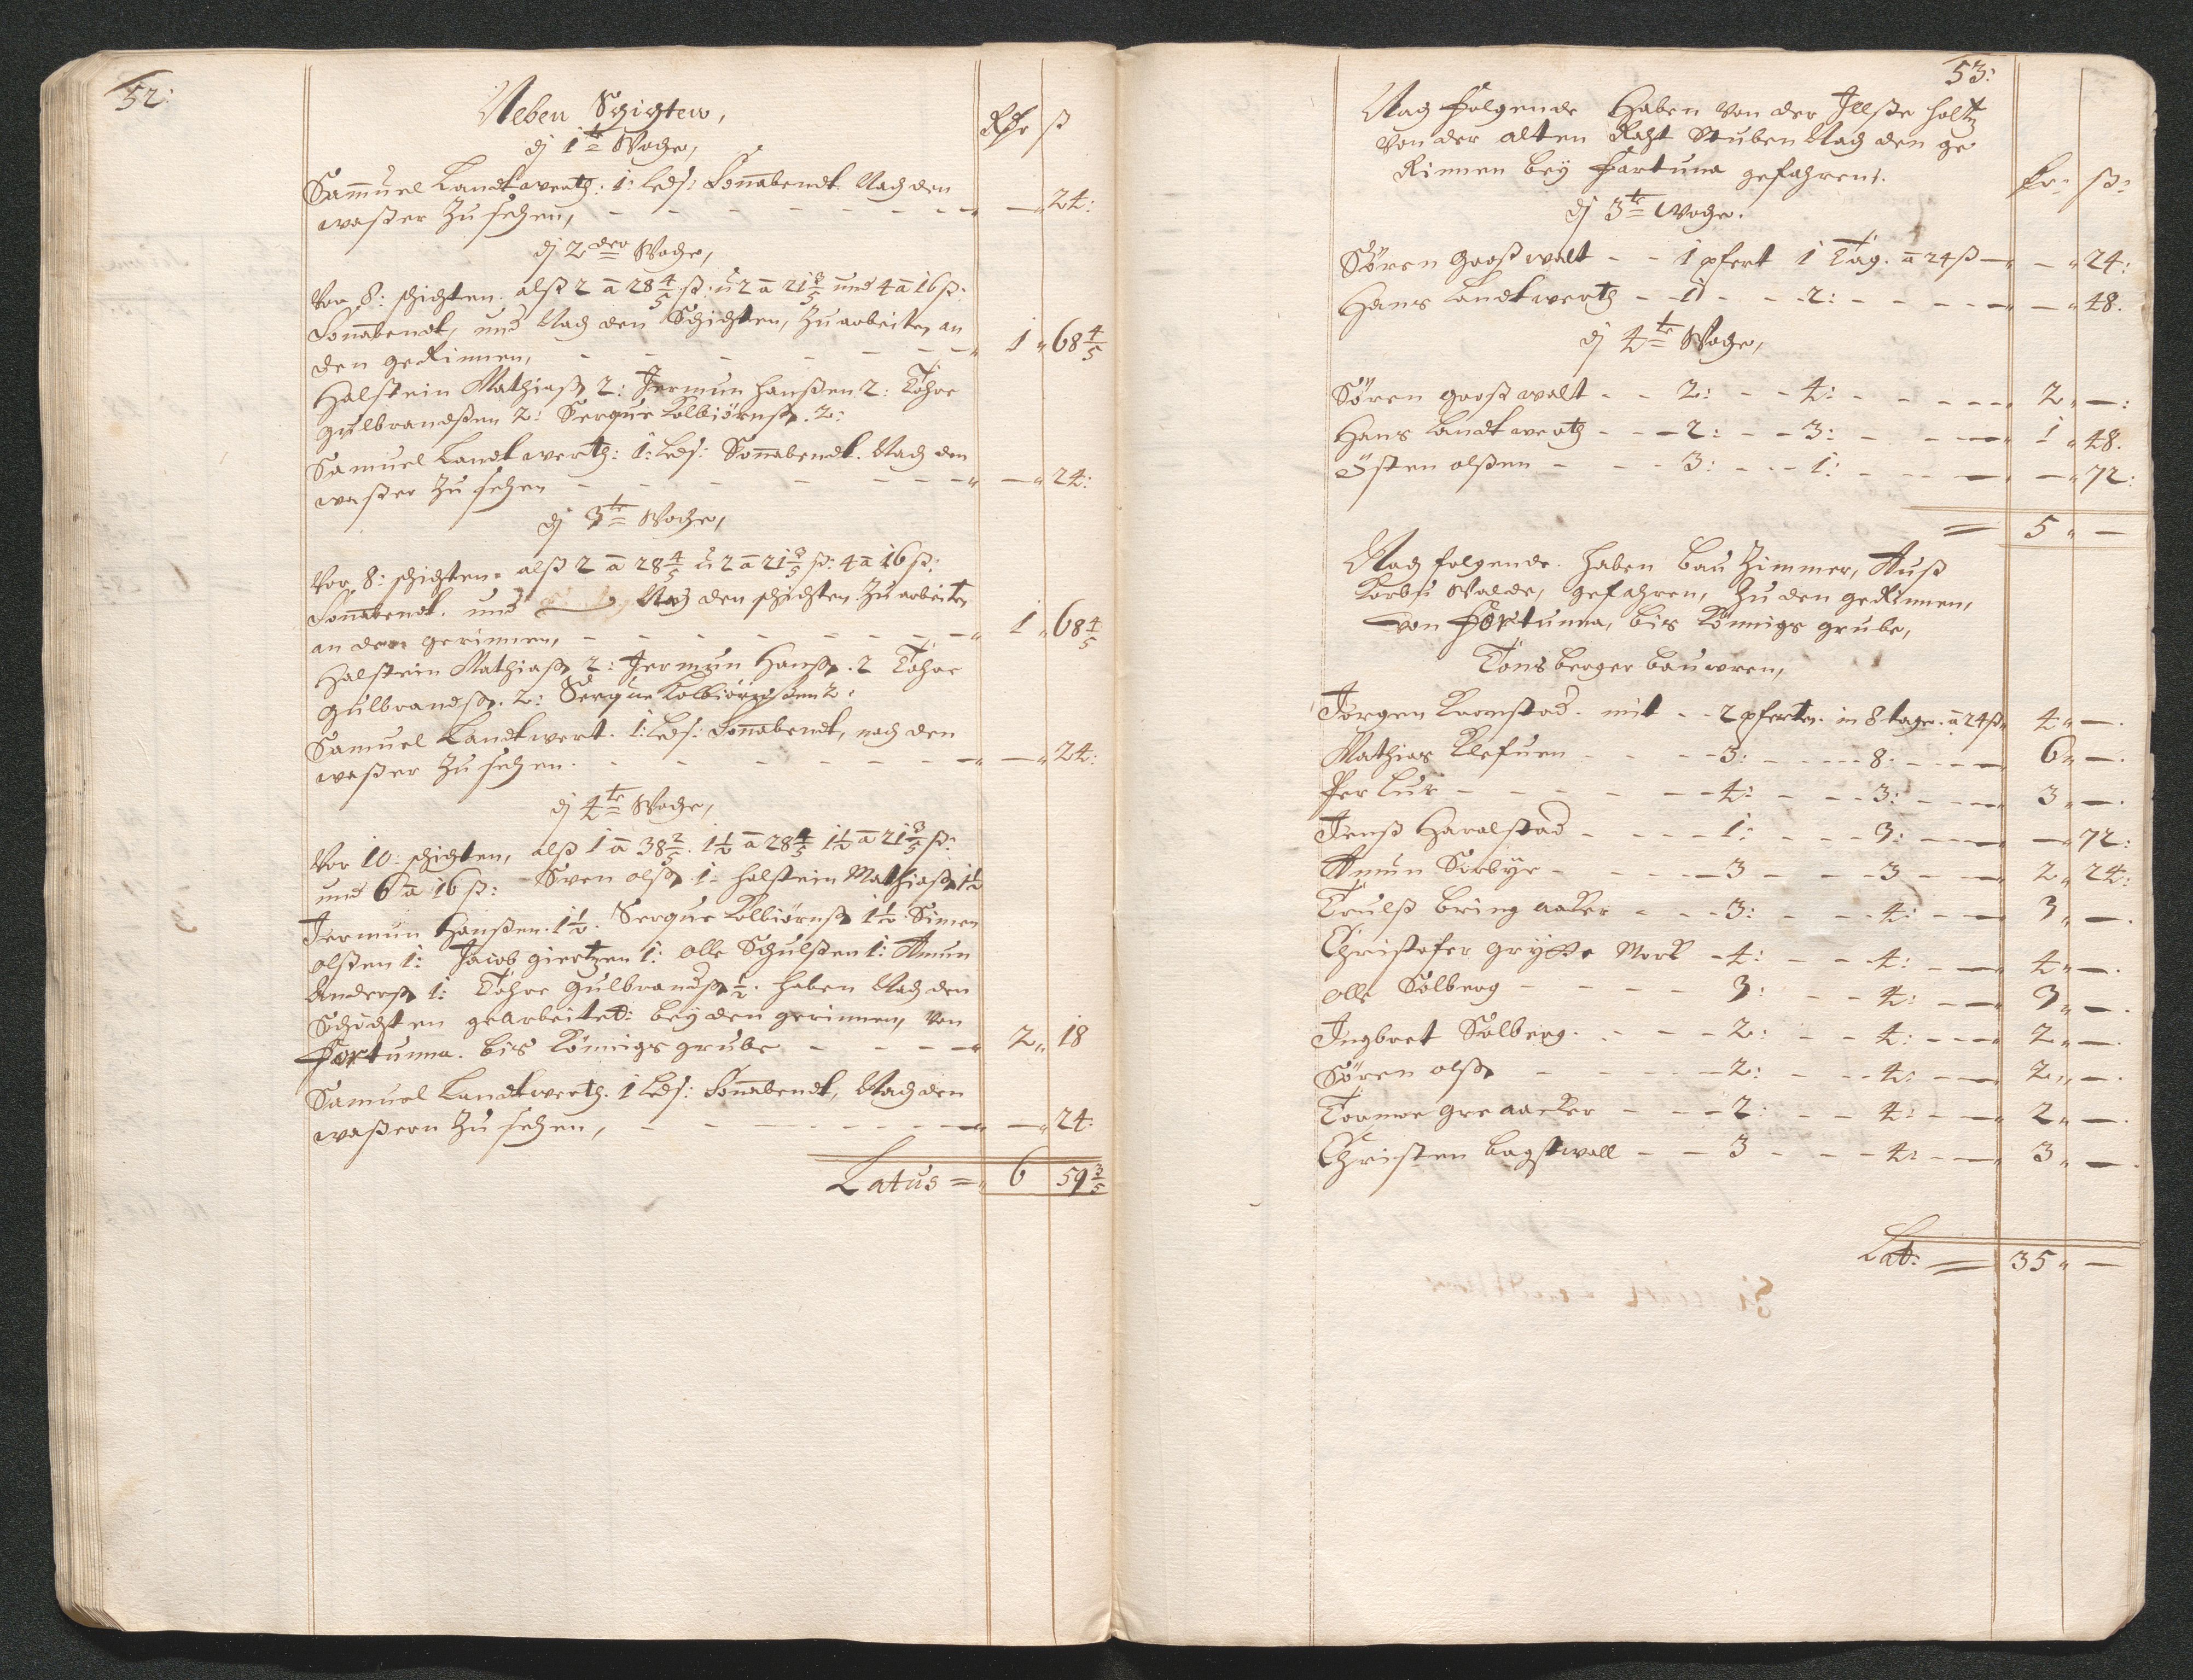 52:
Neben Schichten,
Rthr ß
dj 1te Woche,
Samuel Landtwerth: 1: Leds: Sonnabendt. Nach den
waßer Zu sehen, - - - - - - - „ — „ 24:
dj 2der Woche,
Vor 8: schichten. alß 2 a 28 4/5 ß: u 2 a 21 3/5 und 4 a 16 ß:
Sonnabendt, und Nach den Schichten, Zu arbeiten an
den geRinnen, - - - - - - - „ 1 „ 68 4/5
Halstein Mathiaß 2: Jermun Hanßen 2: Tohre
Gulbrandßen 2: Sergue Kolbiörnß. 2:
Samuel Landtwerth: 1: Leds: Sonnabendt. Nach den
waßer Zu sehen - - - - - - - „ — „ 24:
dj 3te Woche,
Vor 8: schichten. alß 2 a 28 4/5 u 2 a 21 3/5 ß: 4 a 16 ß:
Sonnabendt. und Nach den schichten Zu arbeiten
an den gerinnen, - - - - - - - „ 1 „ 68 4/5
Halstein Mathiaß 2: Jermun Hanß. 2 Tohre
Gulbrandß. 2: Sergue Kolbiörnßen 2:
Samuel Landtwert. 1: Leds: Sonnabendt, nach den
waßer Zu sehen. - - - - - - - „ — „ 24:
dj 4te Woche,
Vor 10: schichten, alß 1 a 38 2/5. 1½ a 28 4/5 1½ a 21 3/5 ß:
und 6 a 16 ß: Sven olß. 1: Halstein Mathiaß 1½
Jermun Hanßen. 1½. Sergue Kolbiörnß 1½. Simen
olßen 1: Jacob giertzen 1: olle Schulßen 1: Amun
Anderß 1: Tohre Gulbrandß ½. haben Nach den
Schichten gearbeitet: bey den gerinnen, Von
Fortunna. bis Königs grube - - - - „ 2 „ 18
Samuel Landtwerth. 1 Leds: Sonnabendt, Nach den
waßern Zu sehen, - - - - - - - „ — „ 24:
Latus = „ 6 59 3/5
53:
Nach Folgende Haben von der Ilße holtz
Von der alten Raht Stuben Nach den ge
Rinnen bey Fartuna gefahren.
ß:
dj 3te Woche.
Sören Groß walt - - 1 pfert 1 Tag. a 24 ß — „ — „ 24:
Hans Landtwerth - - 1 - - - 2: - - - - „ — „ 48.
dj 4te Woche,
Sören Groß walt - - 2: - - 4: - - - - „ 2 „ —:
Hans Landtwerth - - - 2: - - 3: - - - „ 1 „ 48.
Östen olßen - - - 3: - - 1: - - - — „ 72:
= 5 „ —
Nach folgende. Haben Bau Zimmer, Auß
Walde, gefahren, Zu den geRinnen,
von Fortunna, bis Königs grube,
Tonsberger bauwren,
Jörgen Kromstad. mit - - 2 pferten. in 8 tage. a 24 ß „ 4 „ —.
Mathias Klefuen - - - - 3: - - - 8: - - - 6 „ —.
Per Lur - - - - - - 4: - - - 3: - - - 3 „ —.
Jenß Haralstad - - - - 1: - - - 3: - - - — „ 72:
Amun Sorbye - - - - 3 - - - 3 - - „ 2 „ 24:
Trulß Bring aaker - - - 3: - - - 4: - - „ 3 „ —.
Christofer Grytte Mork - 4: - - - 4: - - „ 4 „ —.
olle Solberg - - - - 3: - - 4: - - „ 3 „ —.
Ingbret Solberg. - - - 2: - - 4: - - - 2 „ —.
Sören olß - - - - 2: - - 4: - - 2 „ —.
gre aacker - - - 2: - - 4: - - „ 2 „ —.
Christen bagstwall - - 3 - - - 4: - - „ 3 „ —.
Lat: = 35 „ —